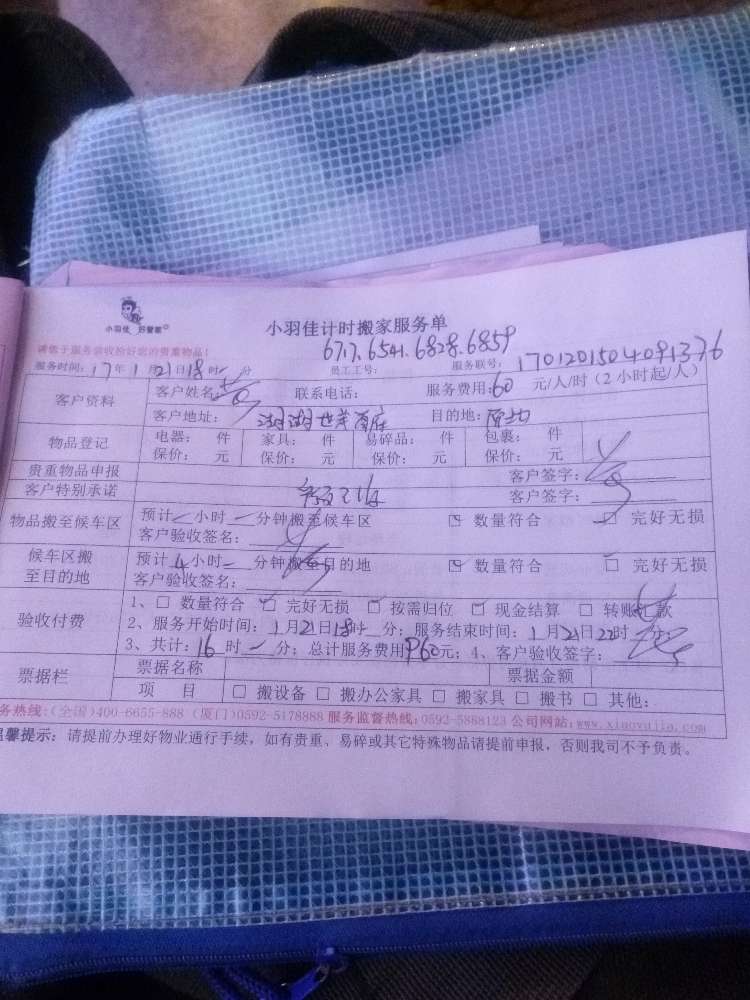 小羽佳 好管家
小羽佳计时搬家服务单
请您于服务前收拾好您的贵重物品!
6717.6541.6828.6859
服务时间:17年1月21日18时 分 员工工号: 服务联号:1701201504091376
客户资料 客户姓名: 联系电话: 服务费用:60 元/人/时(2小时起/人)
客户地址: 目的地:
物品登记 电器: 件 家具: 件 易碎品: 件 包裹: 件
保价: 元 保价: 元 保价: 元 保价: 元
贵重物品申报 客户签字:
客户特别承诺 客户签字:
物品搬至候车区 预计 小时 分钟搬至候车区 数量符合 完好无损
客户验收签名:
候车区搬至目的地 预计4小时 分钟搬至目的地 数量符合 完好无损
客户验收签名:
验收付费 1、□ 数量符合 完好无损 按需归位 现金结算 □ 转账汇款
2、服务开始时间:1月21日18时 分;服务结束时间:1月21日22时 分;
3、共计:16时 分;总计服务费用960元;4、客户验收签字:
票据栏 票据名称 票据金额
项 目 □ 搬设备 □ 搬办公家具 □ 搬家具 □ 搬书 □ 其他:
务热线:(全国)400-6655-888 (厦门)0592-5178888 服务监督热线:0592-5888123 公司网站:www.xiaoyujia.com
温馨提示:请提前办理好物业通行手续,如有贵重、易碎或其它特殊物品请提前申报,否则我司不予负责。